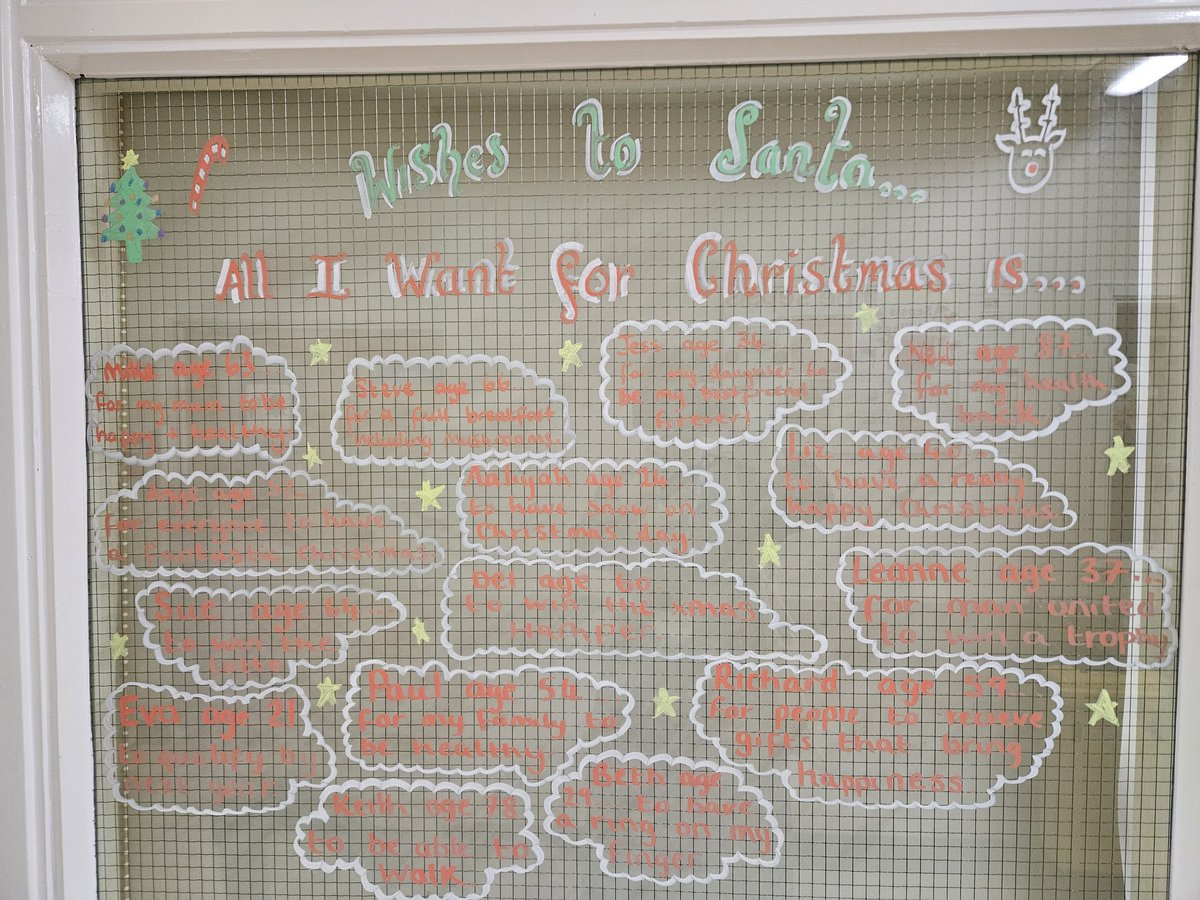 Wishes to Santa...
All I Want for Christmas is...
Mike age 63...
for my mam to be
happy + healthy
Steve age 66
for a full breakfast
including mushrooms
Jess age 34...
for my daughter to
be my best friend
forever!
age 87...
for my health
back
age
for everyone to have
a fantastic Christmas
Aaliyah age 24
to have snow on
Christmas day
Liz age 40...
to have a really
happy Christmas
Sue age 64...
to win the
Lotto
Del age 60
to win the xmas
Hamper.
Leanne age 37...
for man united
to win a trophy
Eva age 21
to qualify by
next year
Paul age 54
for my family to
be healthy
Richard age 59...
for people to recieve
gifts that bring
happiness.
Keith age 78
to be able to
walk
Beth age
29... to have
a ring on my
finger